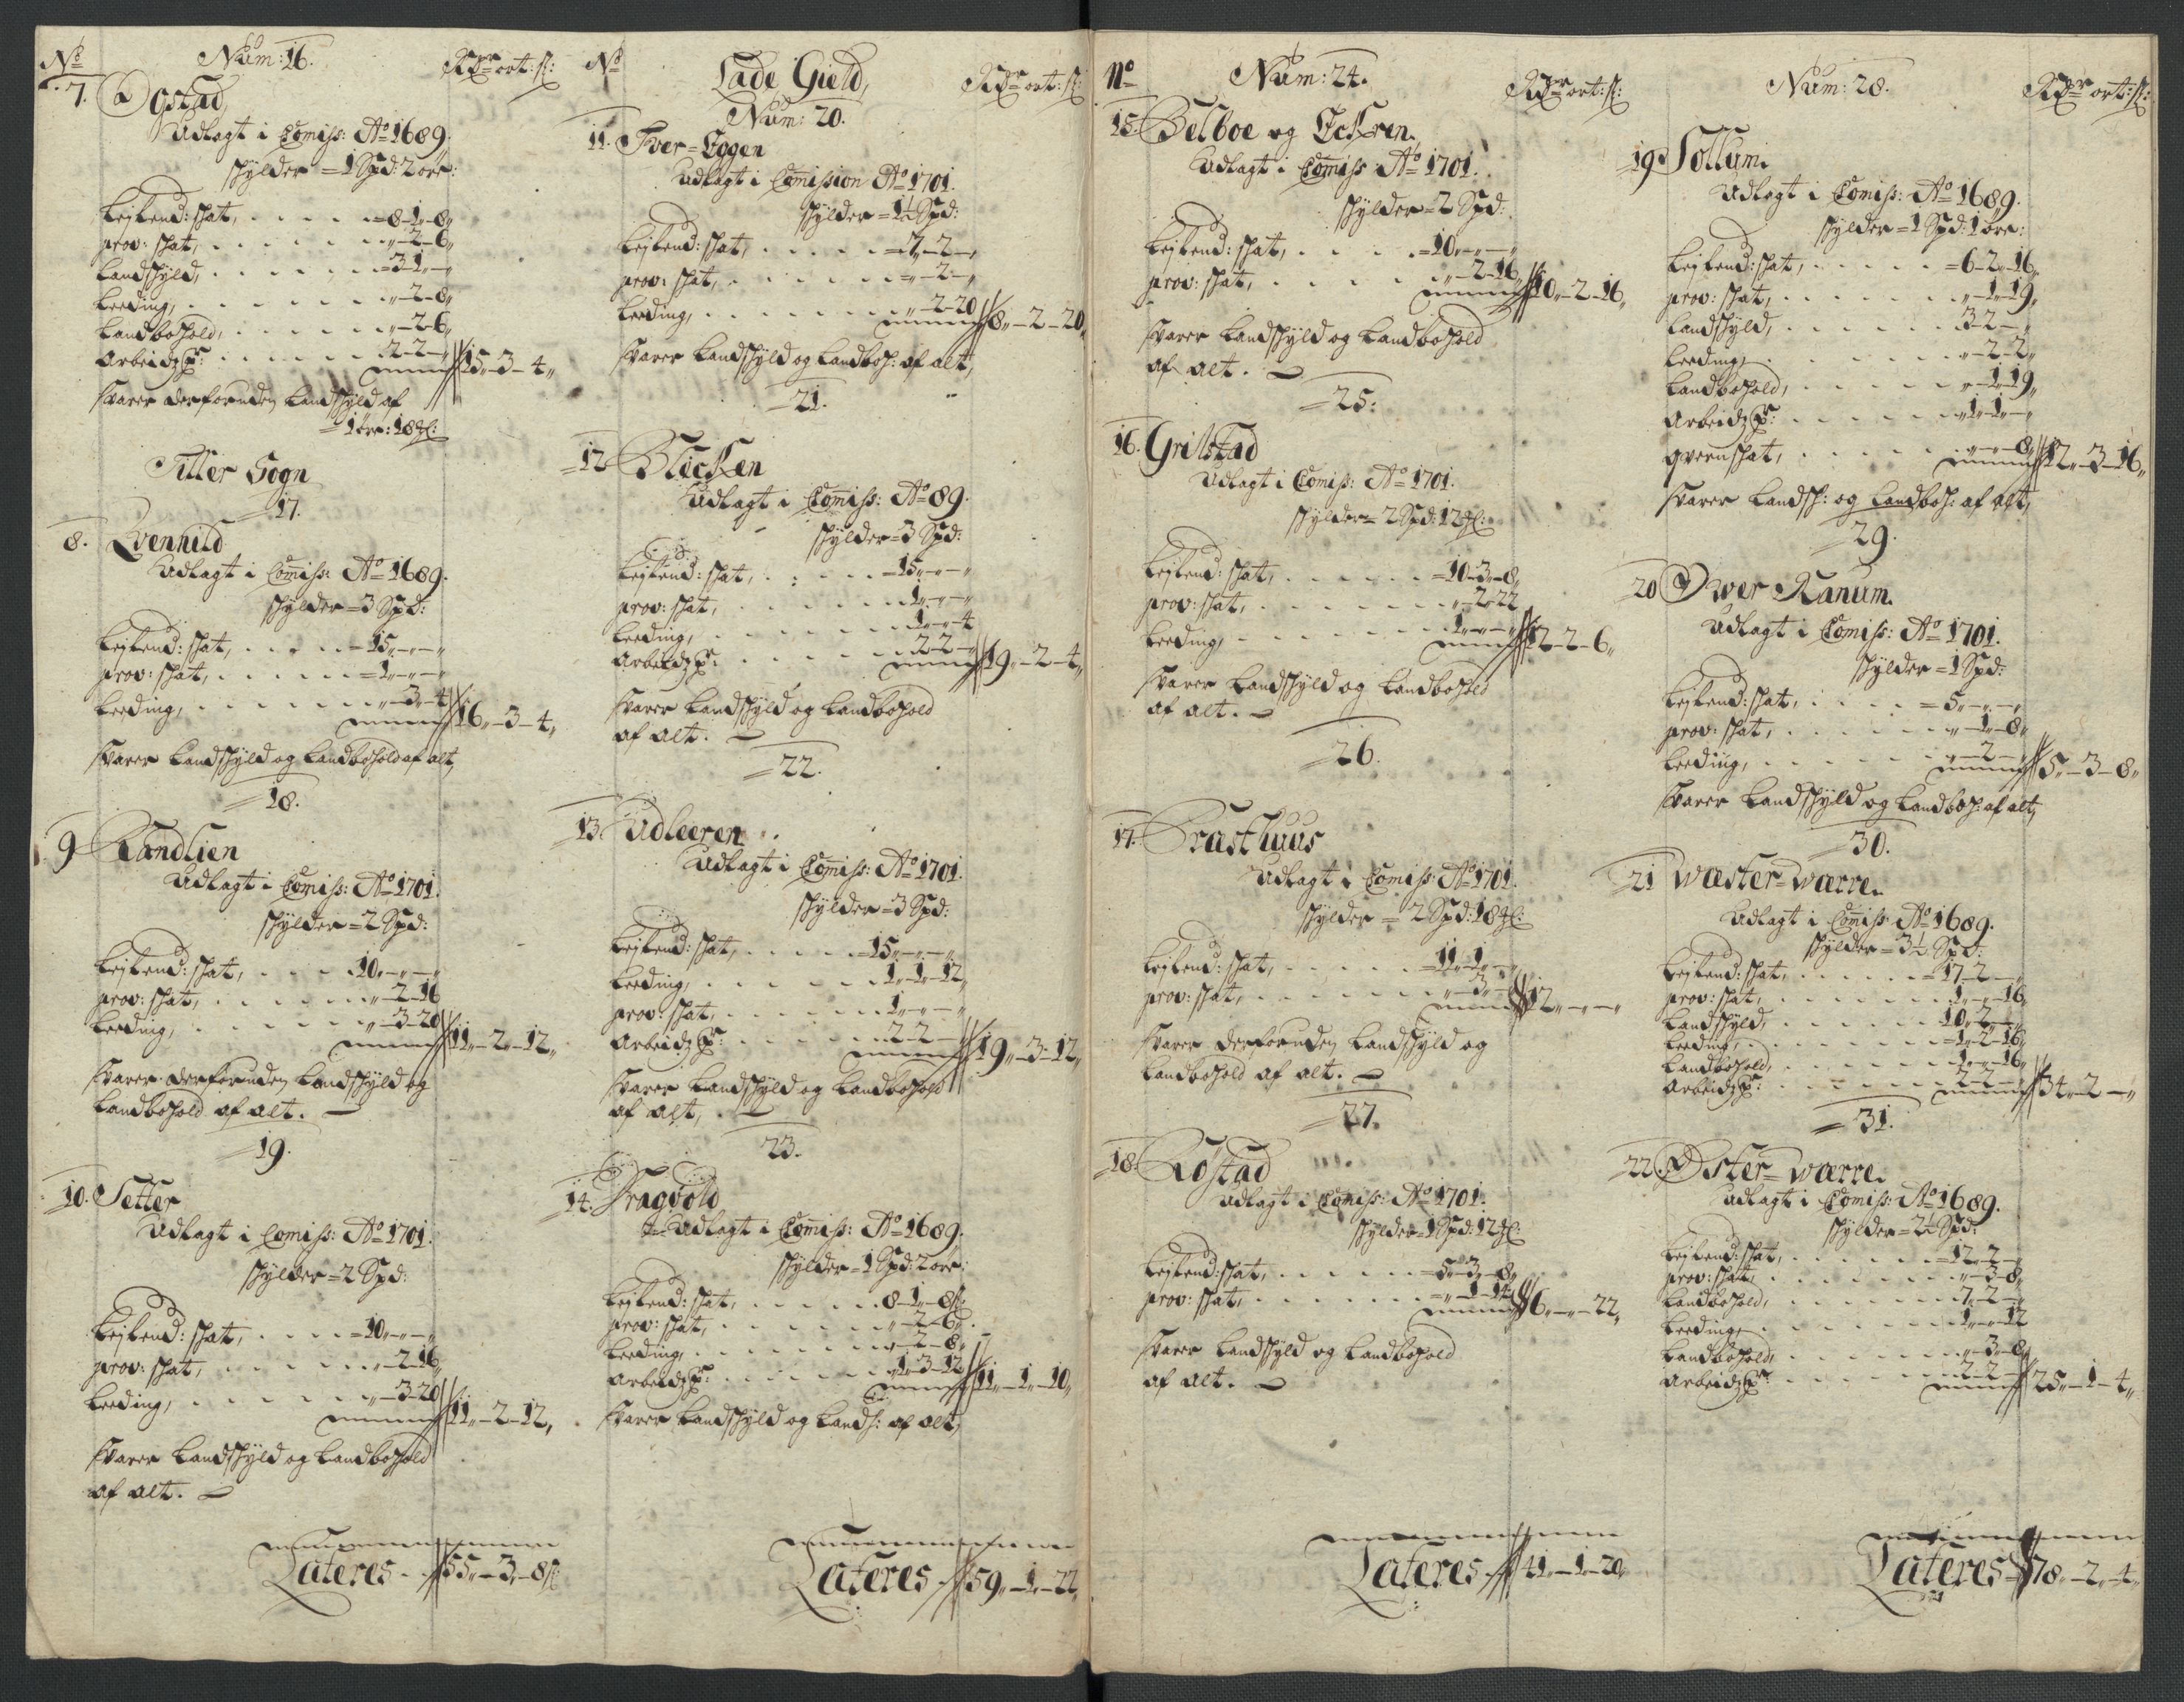 No Num: 16. Rdr ort: ſz:
7. Ogstad
Udlagt i Comiss: Ao 1689.
schÿlder = 1 Spd: 2 ore:
Leylend: schat, . . . . =8-1-8„
prov: schat, . . . . . . „-2-6„
Landschÿld, . . . . . . =3-1„-„
Leeding, . . . . . . . „-2-8„
Landbohold, . . . . . . „-2-6„
Arbeidzp: . . . . . . 2-2-„ 15„-3-4„
svarer derforuden Landschÿld af
=1 ore: 18 ȝl:
Tiller Sogn
=17.
8. Qvenhild
Udlagt i Comiss: Ao 1689.
schÿlder =3 Spd:
Leylend: schat, . . . . =15„-„-„
prov: schat, . . . . . =1„-„-„
Leeding, . . . . . . . „-3-4 16„-3-4„
svarer Landschÿld og Landbohold af alt,
=18.
9 Sandlien
Udlagt i Comiss: Ao 1701.
schÿlder =2 Spd:
Leylend: schat, . . . . 10„-„-„
prov: schat, . . . . . . „-2-16
Leeding, . . . . . . . „-3-20 11„-2-12„
svarer derforuden Landschÿld og
Landbohold af alt.
=19.
10. Setter
Udlagt i Comiss: Ao 1701.
schÿlder =2 Spd:
Leylend: schat, . . . . =10„-„-„
prov: schat, . . . . . . „-2-16
Leeding, . . . . . . . „-3-20 11„-2-12„
svarer Landschÿld og Landbohold
af alt.
Lateres - 55„-3„-8ſz
No Lade Gield, Rdr ort: ſz:
Num: 20.
11. Iver=Eggen
Udlagt i Comission Ao 1701.
schÿlder =1½ Spd:
Leylend: schat, . . . . =7„-2-„
prov: schat, . . . . . =„-2-„
Leeding, . . . . . . . „-2-20 8„-2-20„
svarer Landschÿld og Landboh: af alt,
=21.
12 Blecken
Udlagt i Comiss: Ao 89.
schÿlder =3 Spd:
Leylend: schat, . . . . =15„-„-„
prov: schat, . . . . . . 1„-„-„
Leeding, . . . . . . . 1„-„-4
Arbeidzp: . . . . . . 2-2-„ 19„-2-4„
svarer Landschÿld og Landbohold
af alt.
=22.
13. Udleeren
Udlagt i Comiss: Ao 1701.
schÿlder =3 Spd:
Leylend: schat, . . . . =15„-„-„
Leeding, . . . . . . . 1„-1-12„
prov: schat, . . . . . . 1„-„-„
Arbeidzp: . . . . . . 2-2-„ 19„-3-12„
svarer Landschÿld og Landbohold
af alt,
23.
14. Dragvold
Udlagt i Comiss: Ao 1689.
schÿlder =1 Spd: 2 ore:
Leylend: schat, . . . . 8-1-8ſz
prov: schat, . . . . . . „-2-6„
Leeding, . . . . . . . „-2-8„
Arbeidzp: . . . . . . 1-3-12 11„-1-10„
svarer Landschÿld og Landb: af alt,
Lateres - 59„-1-22„
No Num: 24. Rdr ort: ſz:
15. Belboe og Eckren.
Udlagt i Comiss Ao 1701.
schÿlder =2 Spd:
Leylend: schat, . . . . =10„-„-„
prov: schat, . . . . . . „-2-16 10„-2-16„
svarer Landschÿld og Landbohold
af alt.
=25.
16. Grilstad
Udlagt i Comiss: Ao 1701.
schÿlder = 2 Spd: 12 ȝl:
Leylend: schat, . . . . =10-3„-8„
prov: schat, . . . . . . „-2-22
Leeding, . . . . . . . 1„-„-„ 12-2-6„
svarer Landschÿld og Landbohold
af alt.
=26.
17. Presthuus
Udlagt i Comiss: Ao 1701.
schÿlder = 2 Spd: 18 ȝl:
Leylend: schat, . . . . =11„-1-„
prov: schat, . . . . . . „-3-„ 12„-„-„
svarer derforuden Landschÿld og
Landbohold af alt.
=27.
18. Röstad
Udlagt i Comiss: Ao 1701.
schÿlder =1 Spd: 12 ȝl:
Leylend: schat, . . . . =5„-3„-8„
prov: schat, . . . . . =„-1-14 6„-„-22„
svarer Landschÿld og Landbohold
af alt.
Lateres - 41„-1-20„
Num: 28. Rdr ort: ſz:
19 Sollum.
Udlagt i Comiss: Ao 1689.
schÿlder =1 Spd: 1 ore:
Leylend: schat, . . . . =6-2„-16„
prov: schat, . . . . . . „-1-19„
Landschÿld, . . . . . . 3-2-„
Leeding, . . . . . . . „-2-2„
Landbohold, . . . . . . „-1-19„
Arbeidzp: . . . . . . „1-1-„
qvernschat, . . . . . . „-„-8„ 12„-3-16„
svarer Landsch: og Landboh: af alt,
=29.
20 Ower Ranum.
Udlagt i Comiss: Ao 1701.
schÿlder =1 Spd:
Leylend: schat, . . . . =5„-„-„
prov: schat, . . . . . . „-1-8„
Leeding, . . . . . . . „-2-„ 5„-3-8„
svarer Landschÿld og Landboh: af alt,
=30.
21 Wæster=Wærre.
Udlagt i Comiss: Ao 1689.
schÿlder =3½ Spd:
Leylend: schat, . . . . =17-2-„
prov: schat, . . . . . . 1„-„-16
Landschÿld, . . . . . . 10„-2-„
Leeding, . . . . . . . =1„-2-16„
Landbohold, . . . . . . 1„-„-16„
Arbeidzp: . . . . . . 2-2-„ 34„-2-„
=31.
22 Öster=Wærre.
Udlagt i Comiss: Ao 1689.
schÿlder =2½ Spd:
Leylend: schat, . . . . =12„-2-„
prov: schat, . . . . . . „-3-8„
Landbohold, . . . . . . 7„-2-„
Leeding, . . . . . . . 1„-„-12
Landbohold, . . . . . . „-3-8„
Arbeidzp: . . . . . . 2-2-„ 25„-1-4„
Lateres - 78„-2„-4„